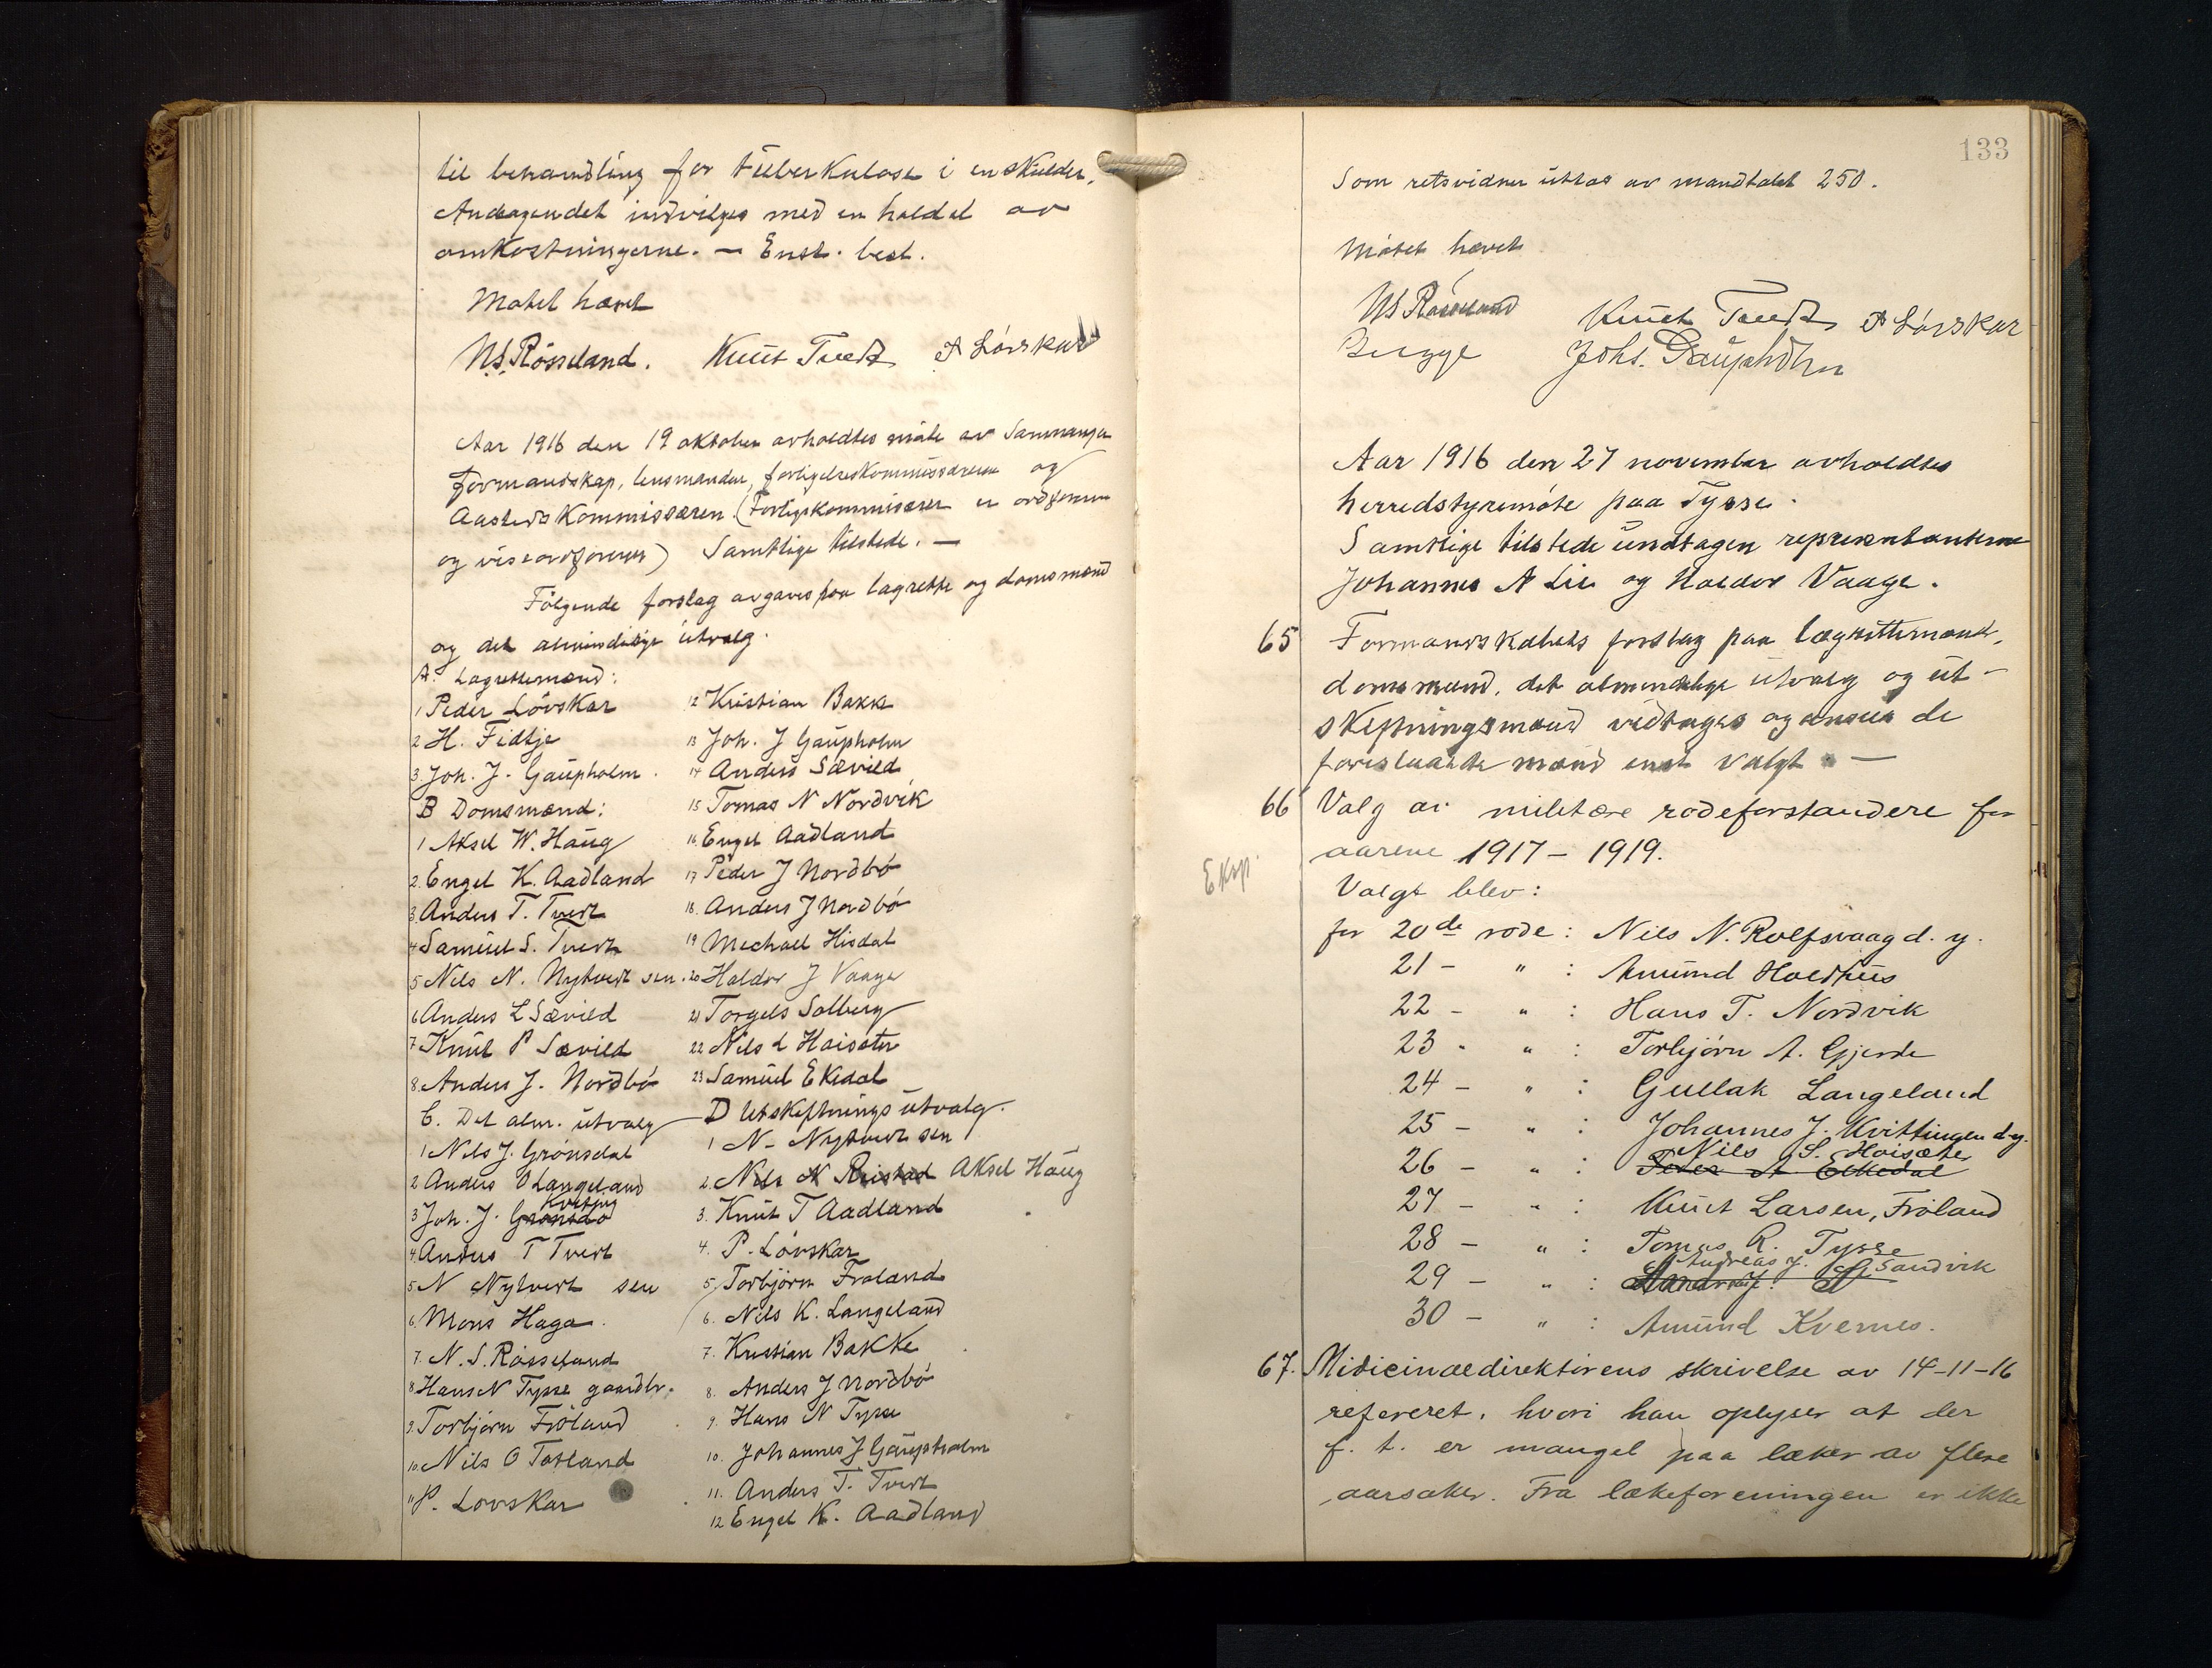 til behandling for tuberkulose i en skulder.
Andragendet indvilges med en haldel av
omkostningerne. — Enst. besl.
Møtet hævet
N.S. Rösseland. Knut Tvedt P Lövskar
Aar 1916 den 19 oktober avholdtes møte av Samnanger
formandskap, lensmanden, forligelseskommissærerne og
Aastedskommissæren. (Forligskommisærer er ordføreren
og viseordføreren) Samtlige tilstede. —
Følgende forslag avgaves paa lagrette og domsmænd
og det almindelige utvalg.
A. Lagrettemænd:
1 Peder Lövskar
2 H. Fidtje
3. Joh. J. Gaupholm.
B Domsmænd:
1 Aksel W. Haug
2. Engel K. Aadland
3. Anders T. Tvedt
4 Samuel S. Tvedt
5 Nils N. Nytvedt sen.
6 Anders L Sævild
7 Knut P Sævild
8. Anders J. Nordbö
C. Det alm. utvalg
1 Nils J. Grønsdal
2 Anders O Langeland
3 Joh. J. Grønsdal
4. Anders T Tvedt
5 N Nytvedt sen
6. Mons Haga.
7. N. S. Rösseland
8 Hans N Tysse gaardbr.
9. Torbjørn Fröland
10. Nils O Totland
11 P. Lövskar
12 Kristian Bakk
13 Joh. J Gaupholm
14 Anders Sævild
15 Tomas N Nordvik
16. Engel Aadland
17 Peder J Nordbö
18. Anders J Nordbö
19 Mechael Hisdal
20 Haldor J Vaage
21 Torgels Solberg
22 Nils L Høisæter
23 Samuel Ekedal
D Utskiftnings utvalg.
1 N. Nytvedt sen
2. Nils N Reistad Aksel Haug
3. Knut T Aadland
4. P. Lövskar
5. Torbjørn Fröland
6. Nils K. Langeland
7. Kristian Bakke
8. Anders J Nordbö
9. Hans N Tysse
10. Johannes J Gaupholm
11. Anders T. Tvedt
12 Engel K. Aadland
133
Som retsvidner uttas av mandtalet 250.
Møtet hævet
N S Rösseland Knut Tvedt P Lövskar
Bugge Johs. Gaupholm
Aar 1916 den 27 november avholdtes
herredstyremöte paa Tysse.
Samtlige tilstede undtagen repræsentanterne
Johannes N Lie og Haldor Vaage.
65 Formandskabets forslag paa lægrettemænd,
domsmænd, det almindelige utvalg og ut-
skiftningsmænd vedtages og ansees de
foreslaatte mænd enst valgt —
66 Valg av militære rodeforstandere for
aarene 1917 – 1919.
Eksp.
Valgt blev:
for 20de rode: Nils N. Rolfsvaag d. y.
21 – " : Amund Holdhus
22 – " : Hans T. Nordvik
23 - " : Torbjørn A. Gjerde
24 – " : Gullak Langeland
25 – " : Johannes J. Kvittingen d.y.
26 – " : Nils S. Høisæter
27 – " : Knut Larsen, Fröland
28 – " : Tomas R. Tysse
29 – " : Andreas J. Sandvik
30 – " : Amund Kvernes.
67. Midicinaldirektørens skrivelse av 14-11-16
refereret, hvori han oplyser at der
f. t. er mangel paa læker av flere
aarsaker. Fra lækeforeningen er ikke